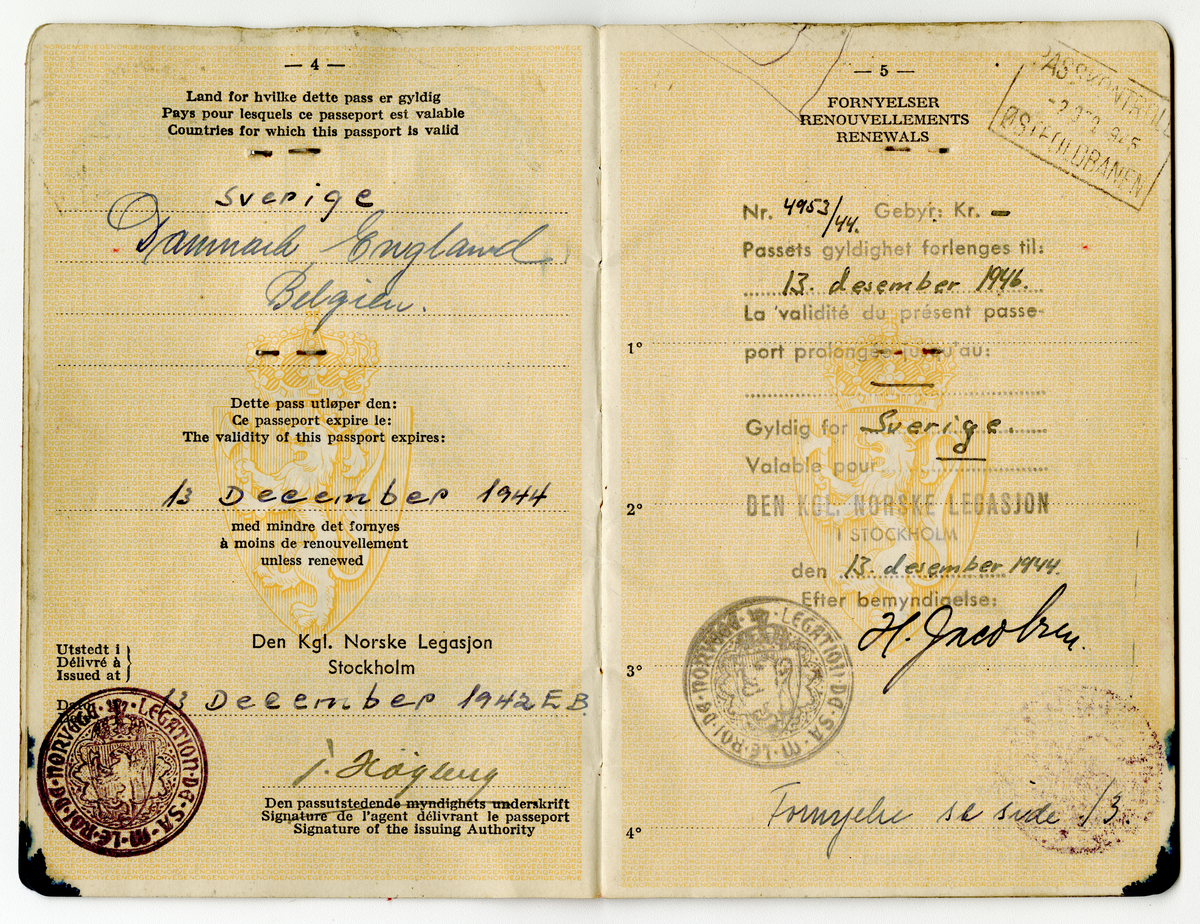 — 4 —
Land for hvilke dette pass er gyldig
Pays pour lesquels ce passeport est valable
Countries for which this passport is valid
Sverige
Danmark England
Belgien.
Dette pass utløper den:
Ce passeport expire le:
The validity of this passport expires:
13 December 1944
med mindre det fornyes
à moins de renouvellement
unless renewed
Den Kgl. Norske Legasjon
Stockholm
Utstedt i
Délivré à
Issued at
13 December 1942 E.B.
LEGATION·DE·S·A·M·LE·ROI·DE·NORVEGE
Den passutstedende myndighets underskrift
Signature de l'agent délivrant le passeport
Signature of the issuing Authority
— 5 —
FORNYELSER
RENOUVELLEMENTS
RENEWALS
PASSKONTROLL
ØSTFOLDBANEN
Nr. 4953/44. Gebyr: Kr. —
Passets gyldighet forlenges til:
13. desember 1946.
La validité du présent passe-
1° port prolongée jusqu'au:
Gyldig for Sverige.
Valable pour
2° DEN KGL. NORSKE LEGASJON
I STOCKHOLM
den 13. desember 1944.
Efter bemyndigelse:
H. Jacobsen.
LEGATION·DE·S·A·M·LE·ROI·DE·NORVEGE
3°
Fornyelse se side 13.
4°